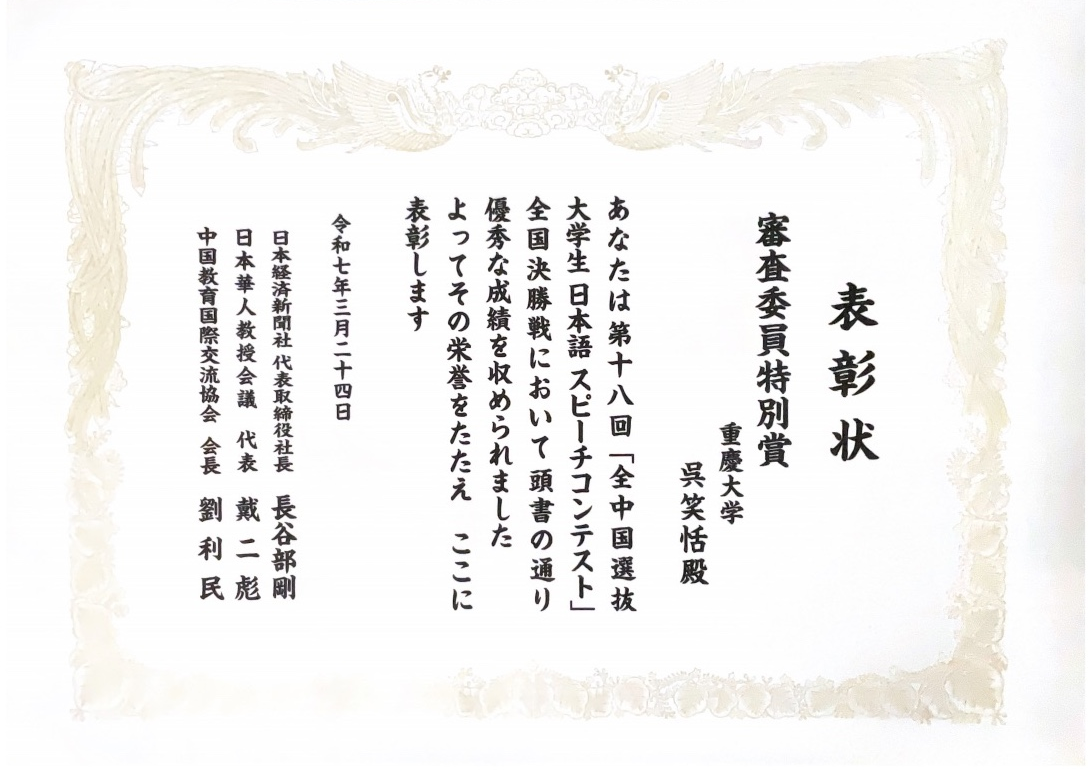 表彰状
審査委員特別賞
重慶大学
呉笑恬殿
あなたは第十八回「全中国選抜
大学生日本語スピーチコンテスト」
全国決勝戦において頭書の通り
優秀な成績を収められました
よってその栄誉をたたえ ここに
表彰します
令和七年三月二十四日
日本経済新聞社 代表取締役社長 長谷部剛
日本華人教授会議 代表 戴二彪
中国教育国際交流協会 会長 劉利民